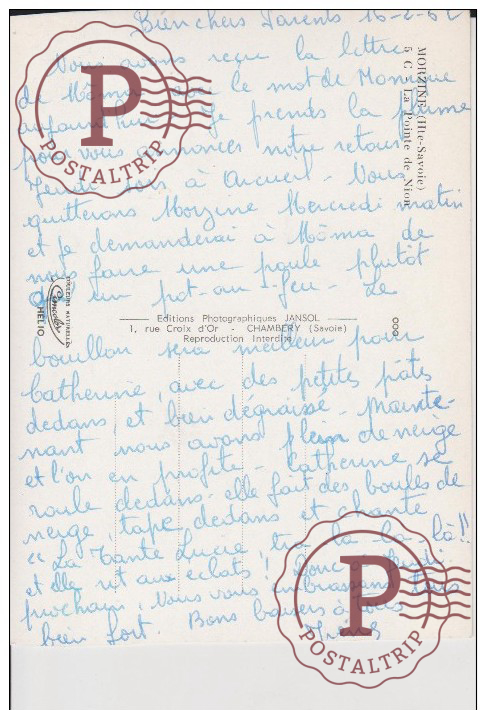 Bien chers Parents 16-2-62
Nous avons reçu la lettre
de Môma avec le mot de Monique
aujourd'hui. Je prends la plume
pour vous annoncer notre retour
Jeudi soir à Arcueil. Nous
quitterons Morzine Mercredi matin
et je demanderai à Môma de
nous faire une poule plutôt
qu'un pot-au-feu. Le
bouillon sera meilleur pour
Catherine, avec des petites pâtes
dedans, et bien dégraissé. Mainte-
nant nous avons plein de neige
et l'on en profite. Catherine se
roule dedans, elle fait des boules de
neige, tape dedans et chante
"La Tante Lucie, tra la la là"!!
et elle rit aux éclats! Donc à Jeudi
prochain, Nous vous embrassons tous
bien fort. Bons baisers à tous
MORZINE (Hte-Savoie)
5 C - La Pointe de Nion
Editions Photographiques JANSOL
1, rue Croix d'Or - CHAMBERY (Savoie)
Reproduction Interdite
COULEURS NATURELLES
HELIO
P
POSTALTRIP
P
POSTALTRIP